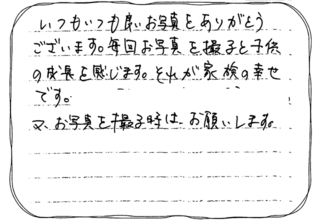 いつもいつも良いお写真をありがとう
ございます。毎回お写真を撮ると子供
の成長を感じます。それが家族の幸せ
です。
又、お写真を撮る時は、お願いします。